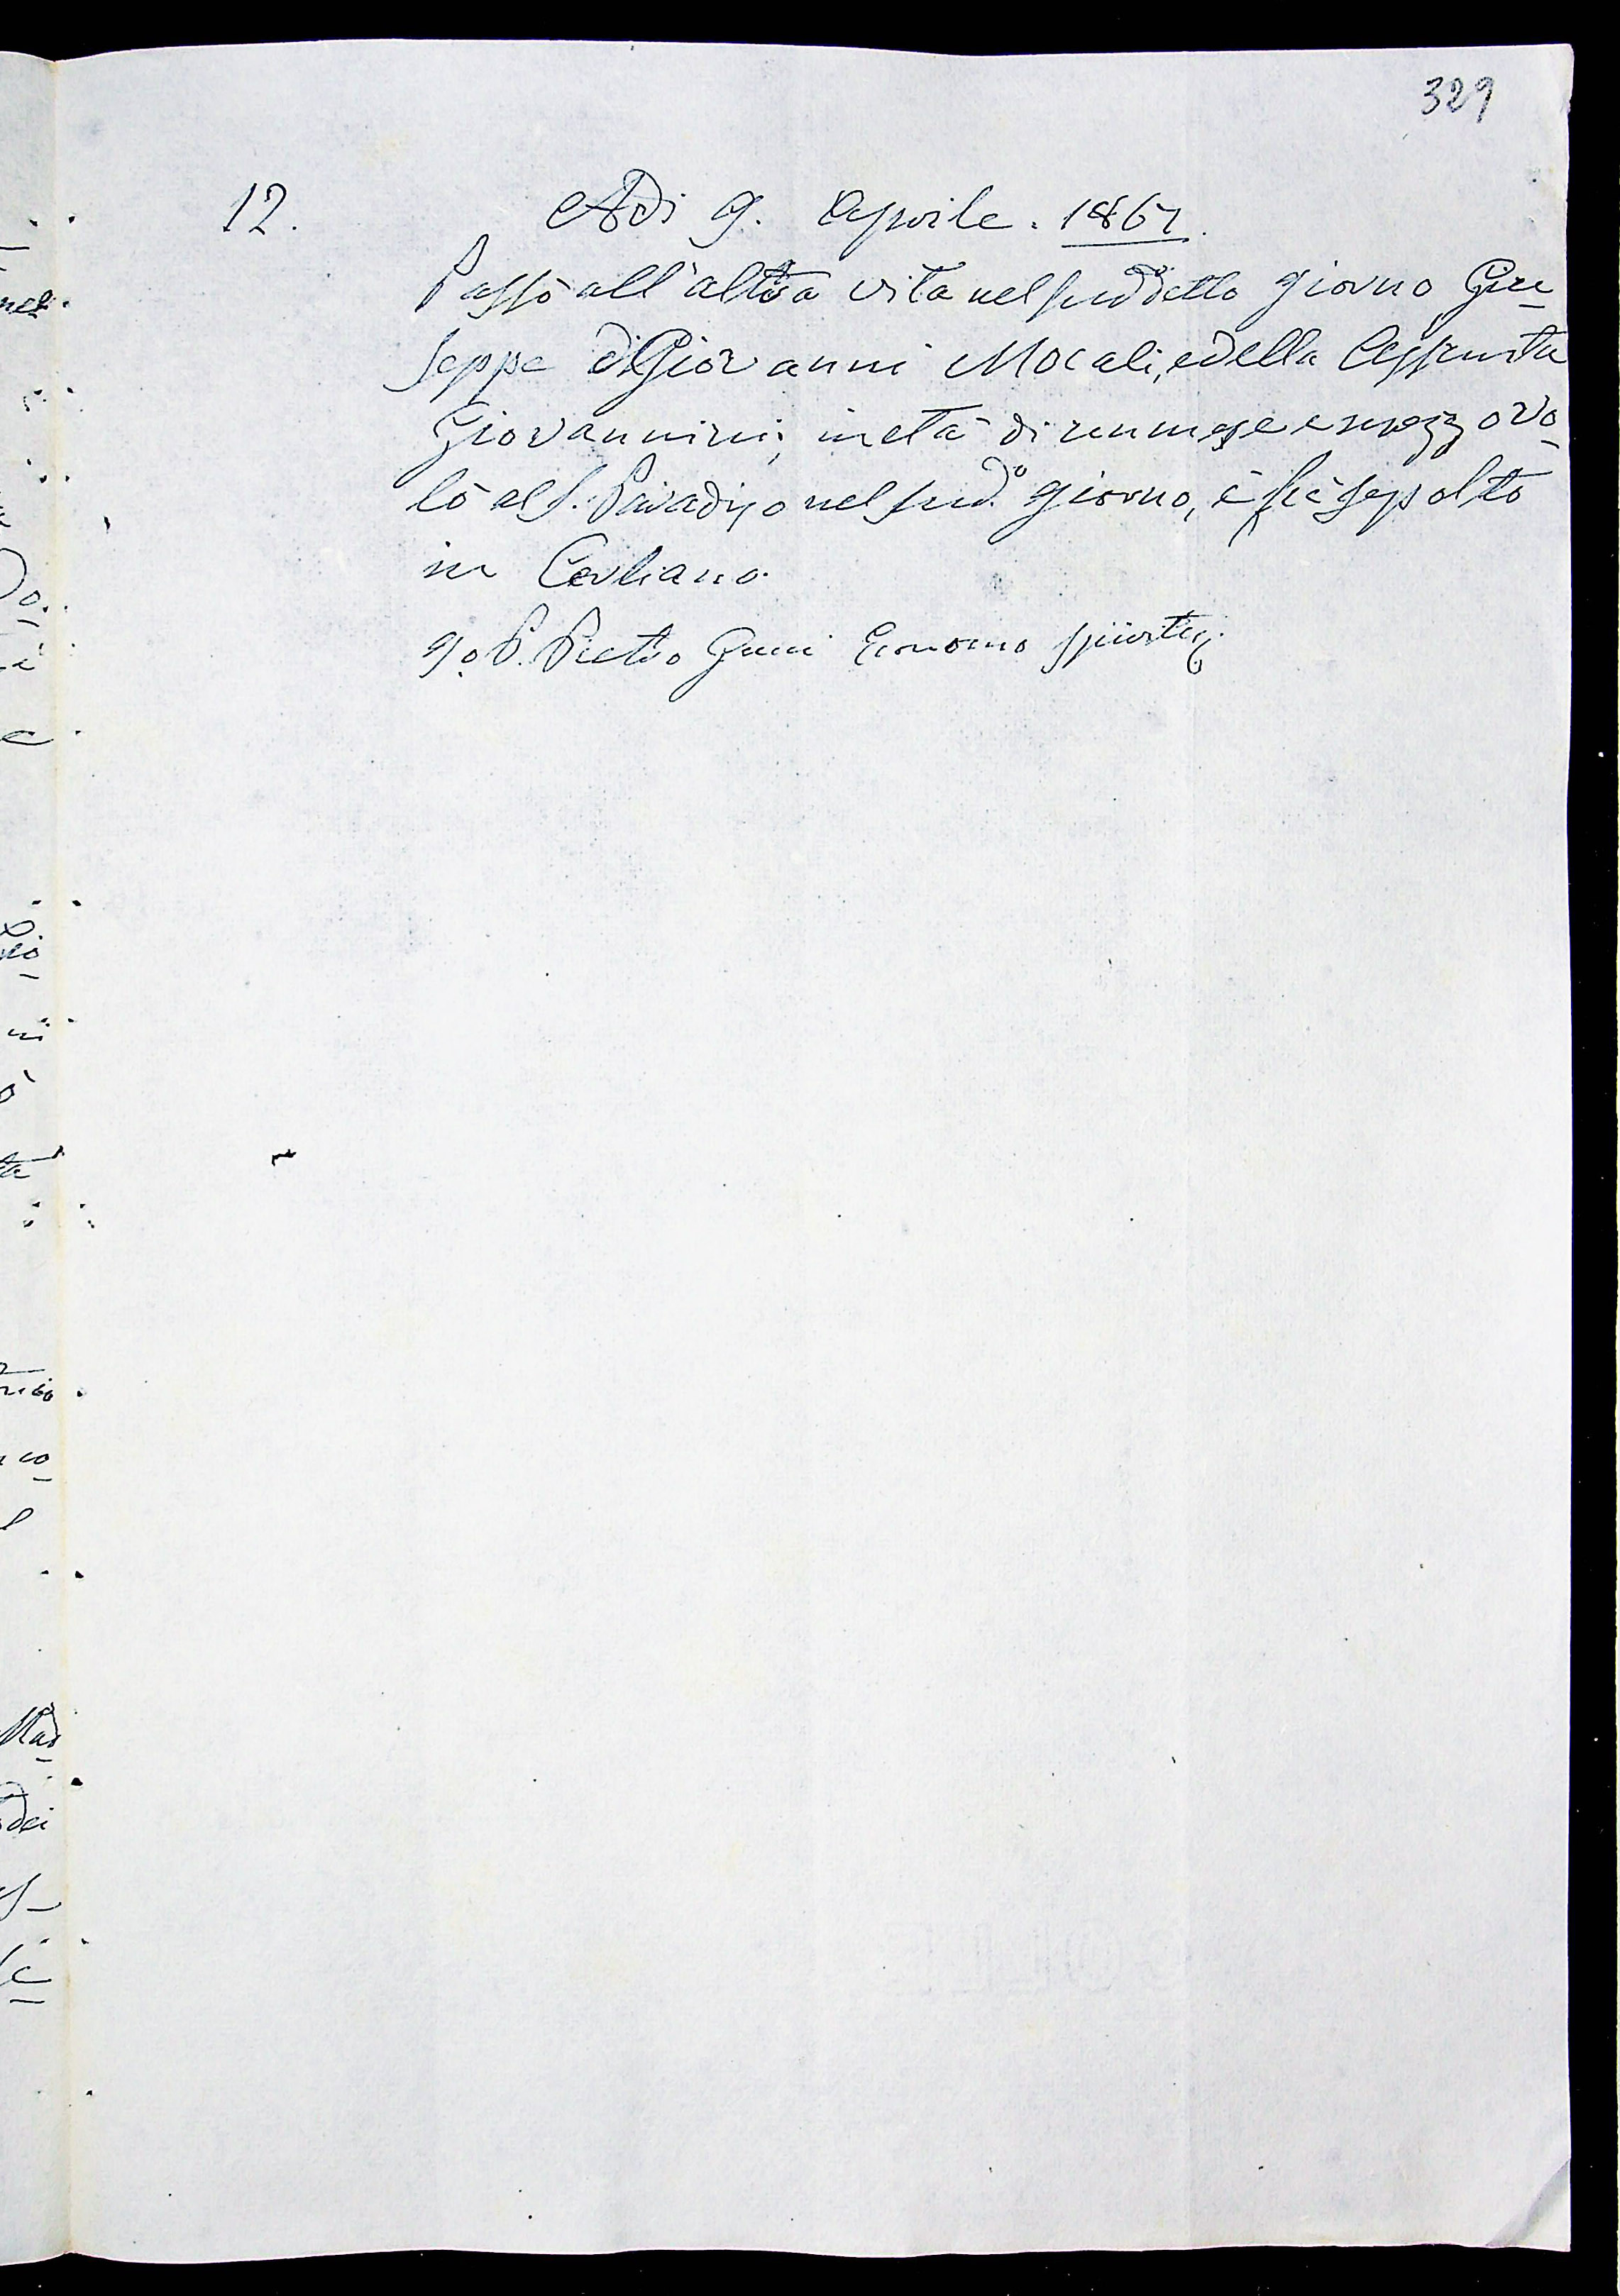 329
12. Adi 9. Aprile. 1867.
Passò all'altra vita nel suddetto giorno Giu
seppe di Giovanni Mocali, e della Assunta
Giovannini, in età di un mese e mezzo vo
lò al S. Paradiso nel sud.º giorno, e fù sepolto
in Cerliano.
Io P. Pietro Economo Spirite